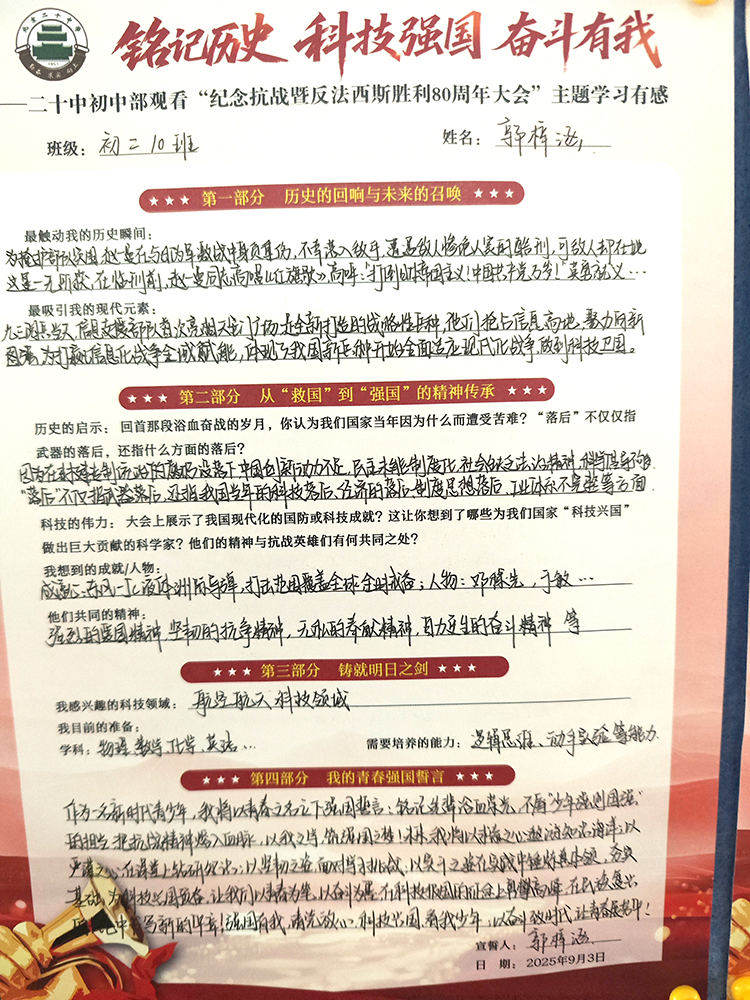 铭记历史 科技强国 奋斗有我
——二十中初中部观看“纪念抗战暨反法西斯胜利80周年大会”主题学习有感
班级：初二10班 姓名：郭梓涵
第一部分 历史的回响与未来的召唤
最触动我的历史瞬间：
为掩护部队突围，赵一曼在与日伪军激战中身负重伤，不幸落入敌手，遭受敌人惨绝人寰的酷刑，可敌人却在她
这里一无所获，在临刑前，赵一曼同志高唱《红旗歌》，高呼：“打倒日本帝国主义！中国共产党万岁！”英勇就义…
最吸引我的现代元素：
九三阅兵当天，信息支援部队首次亮相天安门广场，是全新打造的战略性兵种，他们抢占信息高地，聚力向新
图强，为打赢信息化战争全域赋能，体现了我国新兵种开始全面适应现代化战争，做到科技卫国。
第二部分 从“救国”到“强国”的精神传承
历史的启示：回首那段浴血奋战的岁月，你认为我们国家当年因为什么而遭受苦难？“落后”不仅仅指
武器的落后，还指什么方面的落后？
因为在封建专制统治的腐朽没落下中国创新动力不足，民主未能制度化，社会缺乏法治精神，科学倡导不够
“落后”不仅指武器落后，还指我国当年的科技落后、经济的落后、制度思想落后、工业体系不完整等方面.
科技的伟力：大会上展示了我国现代化的国防或科技成就？这让你想到了哪些为我们国家“科技兴国”
做出巨大贡献的科学家？他们的精神与抗战英雄们有何共同之处？
我想到的成就/人物：
成就：东风-5C液体洲际导弹，打击范围覆盖全球全时戒备；人物：邓稼先，于敏…
他们共同的精神：
强烈的爱国精神，坚韧的抗争精神，无私的奉献精神，自力更生的奋斗精神 等
第三部分 铸就明日之剑
我感兴趣的科技领域：航空航天科技领域
我目前的准备：
学科：物理 数学 化学 英语… 需要培养的能力：逻辑思维、动手实验等能力.
第四部分 我的青春强国誓言
作为一名新时代青少年，我将以青春之名立下强国誓言：铭记先辈浴血荣光，不负“少年强则国强”
的担当，把抗战精神融入血脉，以我之学，筑强国之梦！未来，我将以求知之心遨游知识海洋；以
严谨之心在课堂上钻研知识；以坚韧之姿面对学习挑战，以实干之姿在实践中锤炼真本领，夯实
基础，为科技兴国预备，让我们以青春为笔，以奋斗为墨，在科技报国的征途上勇攀高峰，在民族复兴
书写新的华章！强国有我，请党放心，科技兴国，看我少年，以奋斗致时代，让青春
宣誓人：郭梓涵
日 期：2025年9月3日